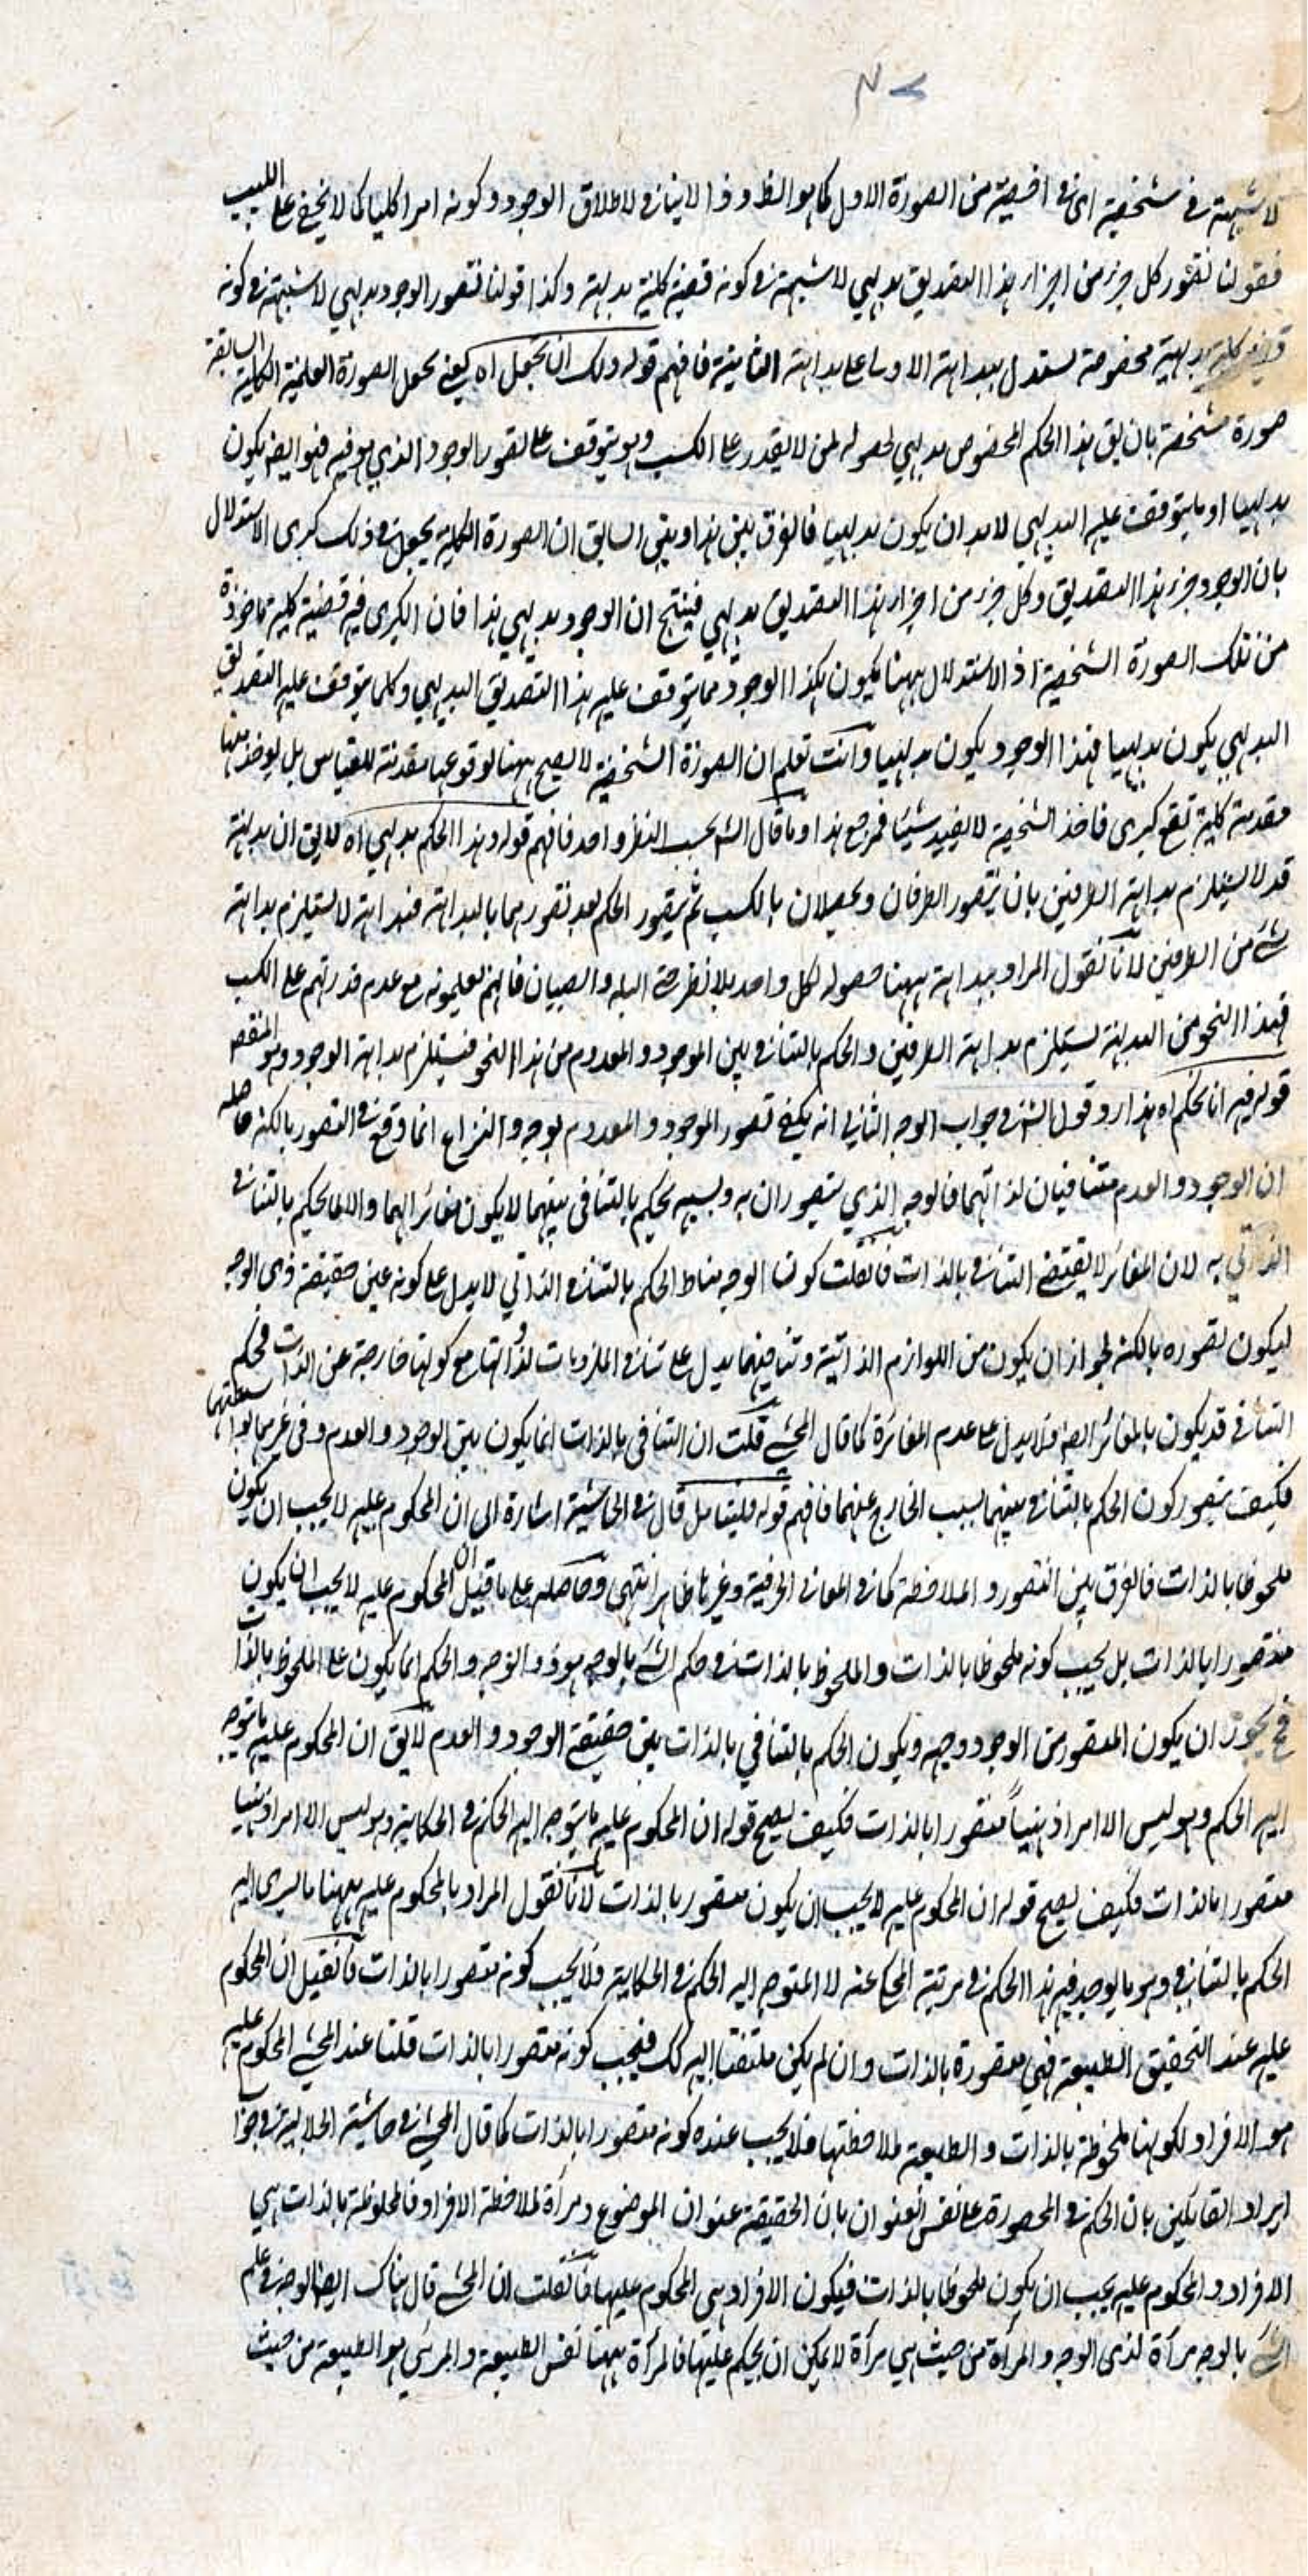 لا شبهة في شخصية اى في اخصية من الصورة الاول كما هو الظ وذا لا ينافي لاطلاق الوجود وكونه امرا كليا كما لا يخفى على اللبيب
فقولنا تصور كل جزء من اجزاء هذا التصديق بديهي لا شبهة في كونه قضية كلية بديهة وكذا قولنا تصور الوجود بديهي لا شبهة في كونه
قضية كلية بديهية مخصوصة يستدل ببداهة الاولى على بداهة الثانية فافهم قوله ولك ان تجعل اه يعني تجعل الصورة العلمية الكلية السابقة
صورة مشخصة بان يق هذا الحكم المخصوص بديهي لحصوله لمن لا يقدر على الكسب وهو يتوقف على تصور الوجود الذي هو فيه فهو ايضا يكون
بديهيا اذ ما يتوقف عليه البديهي لا بد ان يكون بديهيا فالفرق بين هذا وبين السابق ان الصورة الكلية يجعل في ذلك كبرى الاستدلال
بان الوجود جزء هذا التصديق وكل جزء من اجزاء هذا التصديق بديهي فينتج ان الوجود بديهي هذا فان الكبرى فيه قضية كلية ماخوذة
من تلك الصورة الشخصية اذ الاستدلال ههنا يكون هكذا الوجود مما يتوقف عليه هذا التصديق البديهي وكلما يتوقف عليه التصديق
البديهي يكون بديهيا فهذا الوجود يكون بديهيا وانت تعلم ان الصورة الشخصية لا يصح ههنا لوقوعها مقدمة للقياس بل يوخذ منها
مقدمة كلية تقع كبرى فاخذ الشخصية لا يفيد شيئا فمرجع هذا وما قال الش بحسب النظر واحد فافهم قوله وهذا الحكم بديهي اه لا يق ان بداهته
قد لا يستلزم بداهة الطرفين بان يتصور الطرفان ويحصلان بالكسب ثم يتصور الحكم بعد تصورهما بالبداهة فبداهته لا يستلزم بداهة
شئ من الطرفين لانا نقول المراد ببداهته ههنا حصوله لكل واحد بلا نظر حتى البله والصبيان فانهم يعلمونه مع عدم قدرتهم على الكسب
فهذا النحو من البداهة يستلزم بداهة الطرفين والحكم بالتنافي بين الموجود والمعدوم من هذا النحو فيستلزم بداهة الوجود وهو المقصود
قوله فيه انا نحكم اه هذا رد قول الش في جواب الوجه الثاني انه يكفى تصور الموجود والمعدوم بوجه والنزاع انما وقع في التصور بالكنه حاصله
ان الوجود والعدم متنافيان لذاتهما فالوجه الذي يتصوران به وبسببه يحكم بالتنافى بينهما لا يكون مغائرا لهما والا لما يحكم بالتنافي
الذاتي به لان المغائر لا يقتضى التنافي بالذات فان قلت كون الوجه مناط الحكم بالتنافي الذاتي لا يدل على كونه عين حقيقة ذى الوجه
ليكون تصوره بالكنه لجواز ان يكون من اللوازم الذاتية وتنافيهما يدل على تنافي الملزومات لذواتها مع كونها خارجة عن الذات فحكم
التنافي قد يكون بالمغائر ايضا فلا يدل على عدم المغائرة كما قال المحشي قلت ان التنافى بالذات انما يكون بين الوجود والعدم وفى غيرهما بواسطتهما
فكيف يتصور كون الحكم بالتنافي بينهما بسبب الخارج عنهما فافهم قوله فليتامل قال في الحاشية اشارة الى ان المحكوم عليه لا يجب ان يكون
ملحوظا بالذات فالفرق بين التصور والملاحظة كما في المعاني الحرفية وغيرها ظاهر انتهى وحاصله على ما قيل ان المحكوم عليه لا يجب ان يكون
متصورا بالذات بل يجب كونه ملحوظا بالذات والملحوظ بالذات في حكم الشئ بالوجه هو ذو الوجه والحكم انما يكون على الملحوظ بالذات
فح يجوز ان يكون المتصور من الوجود وجهه ويكون الحكم بالتنافي بالذات بين حقيقة الوجود والعدم لا يق ان المحكوم عليه ما يتوجه
اليه الحكم وهو ليس الا امرا ذهنيا متصورا بالذات فكيف يصح قوله ان المحكوم عليه ما يتوجه اليه الحكم في الحكاية وهو ليس الا امرا ذهنيا
متصورا بالذات فكيف يصح قوله ان المحكوم عليه لا يجب ان يكون متصورا بالذات لانا نقول المراد بالمحكوم عليه ههنا ما يسرى اليه
الحكم بالتنافي وهو ما يوجد فيه هذا الحكم في مرتبة المحكى عنه لا المتوجه اليه الحكم في الحكاية فلا يجب كونه متصورا بالذات فان قيل ان المحكوم
عليه عند التحقيق الطبيعة فهي متصورة بالذات وان لم يكن ملتفتا اليه كك فيجب كونه متصورا بالذات قلنا عند المحشي المحكوم عليه
هو الافراد لكونها ملحوظة بالذات والطبيعة لملاحظتها فلا يجب عنده كونه متصورا بالذات كما قال المحشي في حاشية الجلالية في جواب
ايراد القائلين بان الحكم في المحصورة على نفس العنوان بان الحقيقة عنوان الموضوع ومرآة لملاحظة الافراد فالملحوظة بالذات هي
الافراد والمحكوم عليه يجب ان يكون ملحوظا بالذات فيكون الافراد هي المحكوم عليها فان قلت ان المحشي قال هناك ايضا الوجه في علم
الشئ بالوجه مرآة لذى الوجه والمرآة من حيث هي مرآة لا يمكن ان يحكم عليها فالمرآة ههنا نفس الطبيعة والمرئي هو الطبيعة من حيث